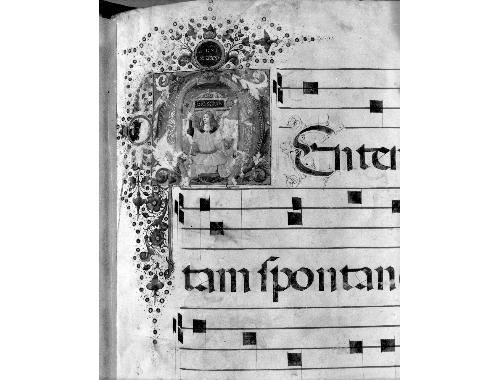 MEntem
tam ſpontane